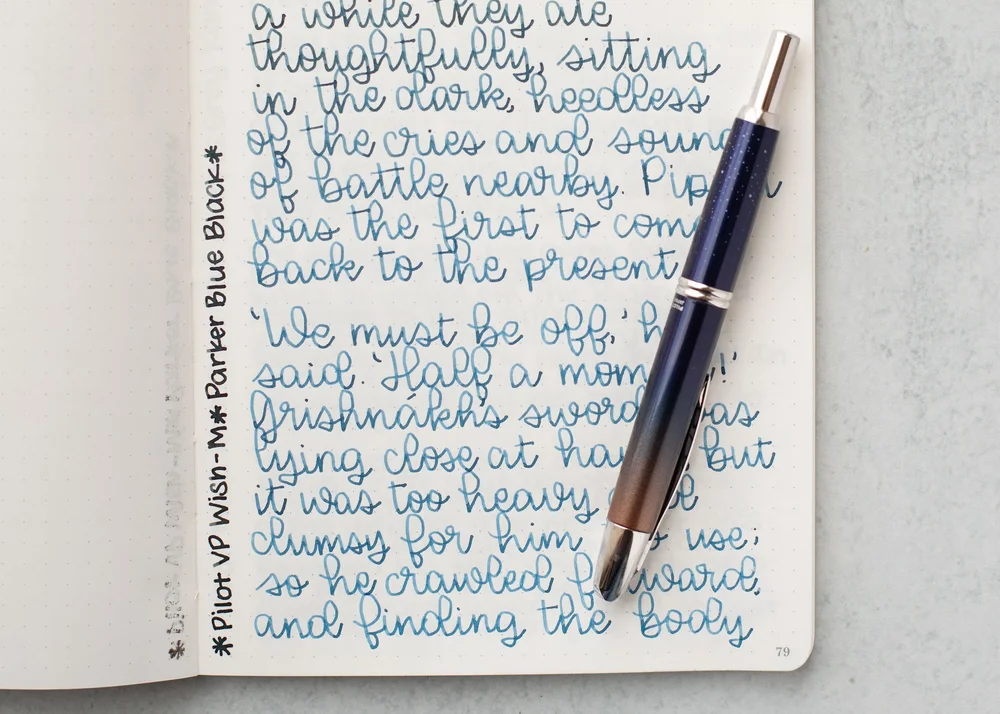 a while they ate
thoughtfully, sitting
in the dark, heedless
of the cries and
of battle nearby.
was the first to
back to the present
'We must be off,'
said. 'Half a
Grishnákh's sword
lying close at but
it was too heavy
clumsy for him use;
so he crawled
and finding the body
79
*Pilot VP Wish-M*Parker Blue Black*